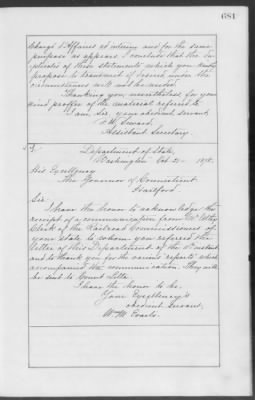 681
Chargé d'Affaires ad interim and for the same
purpose as appears. I conclude that the du-
plicates of these statements which you kindly
propose to transmit if desired under the
circumstances will not be needed.
Thanking you nevertheless for your
kind proffer of the material referred to
I am, Sir, your obedient servant,
F. W. Seward.
Assistant Secretary.
Department of State,
Washington Oct. 21- 1878.
His Excellency
The Governor of Connecticut
Hartford.
Sir:
I have the honor to acknowledge the
receipt of a communication from Mr
Clerk of the Railroad Commissioners of
your state, to whom you referred the
letter of this Department of the instant
and to thank you for the various reports which
accompanied the communication. They will
be sent to Count Litta.
I have the honor to be,
Your Excellency's
obedient servant,
Wm. M. Evarts.